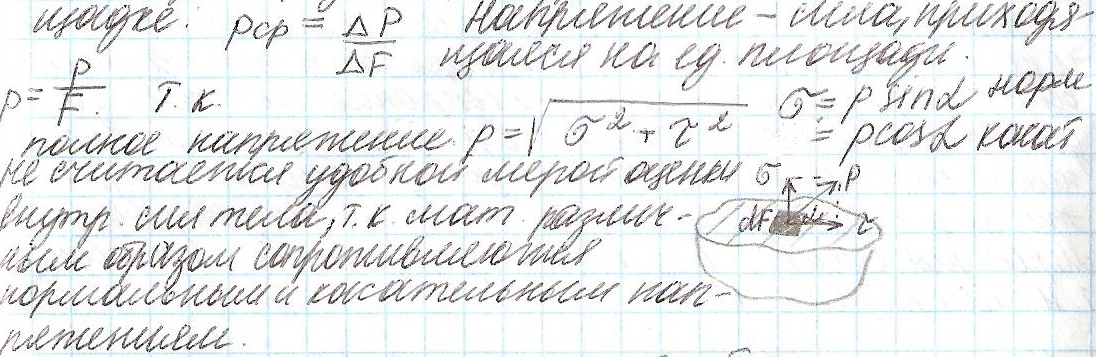 щадке. pср = ΔP/ΔF Напряжение – сила, приходя-
щаяся на ед. площади.
p = P/F. Т.к. σ = p sin α норм
полное напряжение p = √(σ² + τ²) = p cos α касат
не считается удобной мерой оценки σ P
внутр. сил тела, т.к. мат. различ- ΔF τ
ным образом сопротивляются
нормальным и касательным нап-
ряжениям.